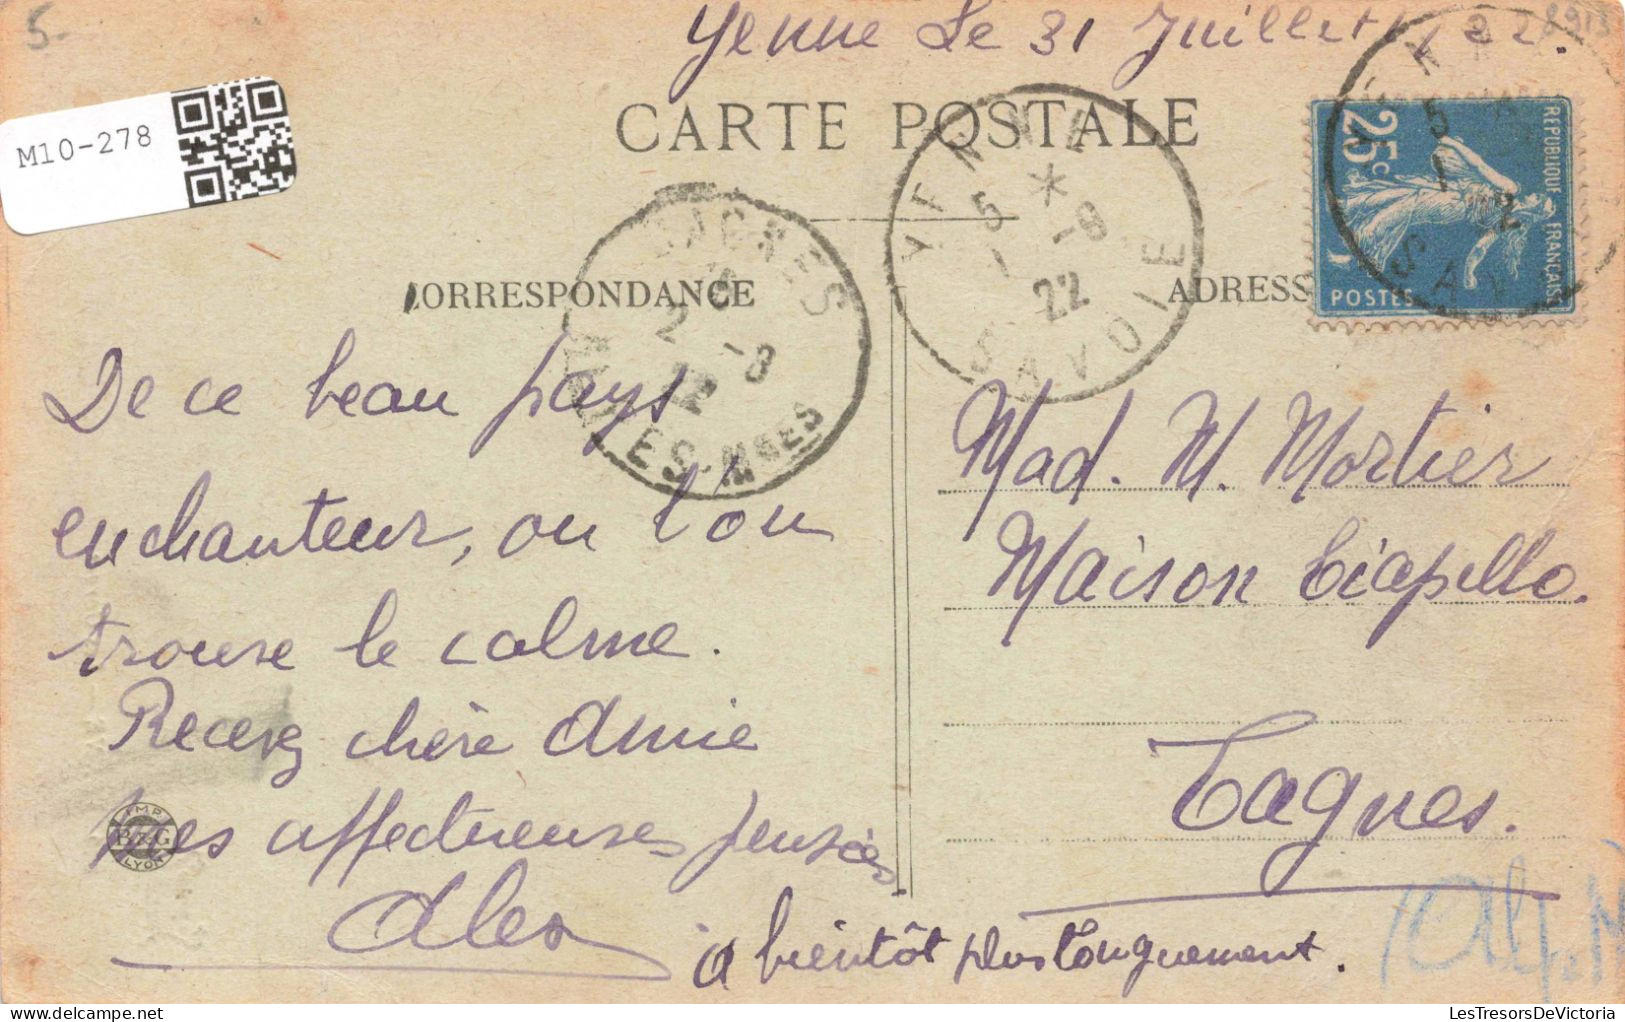 5-
Yenne Le 31 Juillet 1922.
M10-278
CARTE POSTALE
YENNE
5 * 1-8
22
SAVOIE
CAGNES
2-8
22
ALPES-MMES
RÉPUBLIQUE FRANÇAISE
25c
POSTES
CORRESPONDANCE
ADRESS
De ce beau pays
enchanteur, ou l'on
trouve le calme.
Recevez chère Amie
mes affectueuses pensées
Alex
à bientôt plus longuement.
IMP.
B & G
LYON
Mad. M. Mortier
Maison Ciapello.
Cagnes.
Alp. M
LesTresorsDeVictoria